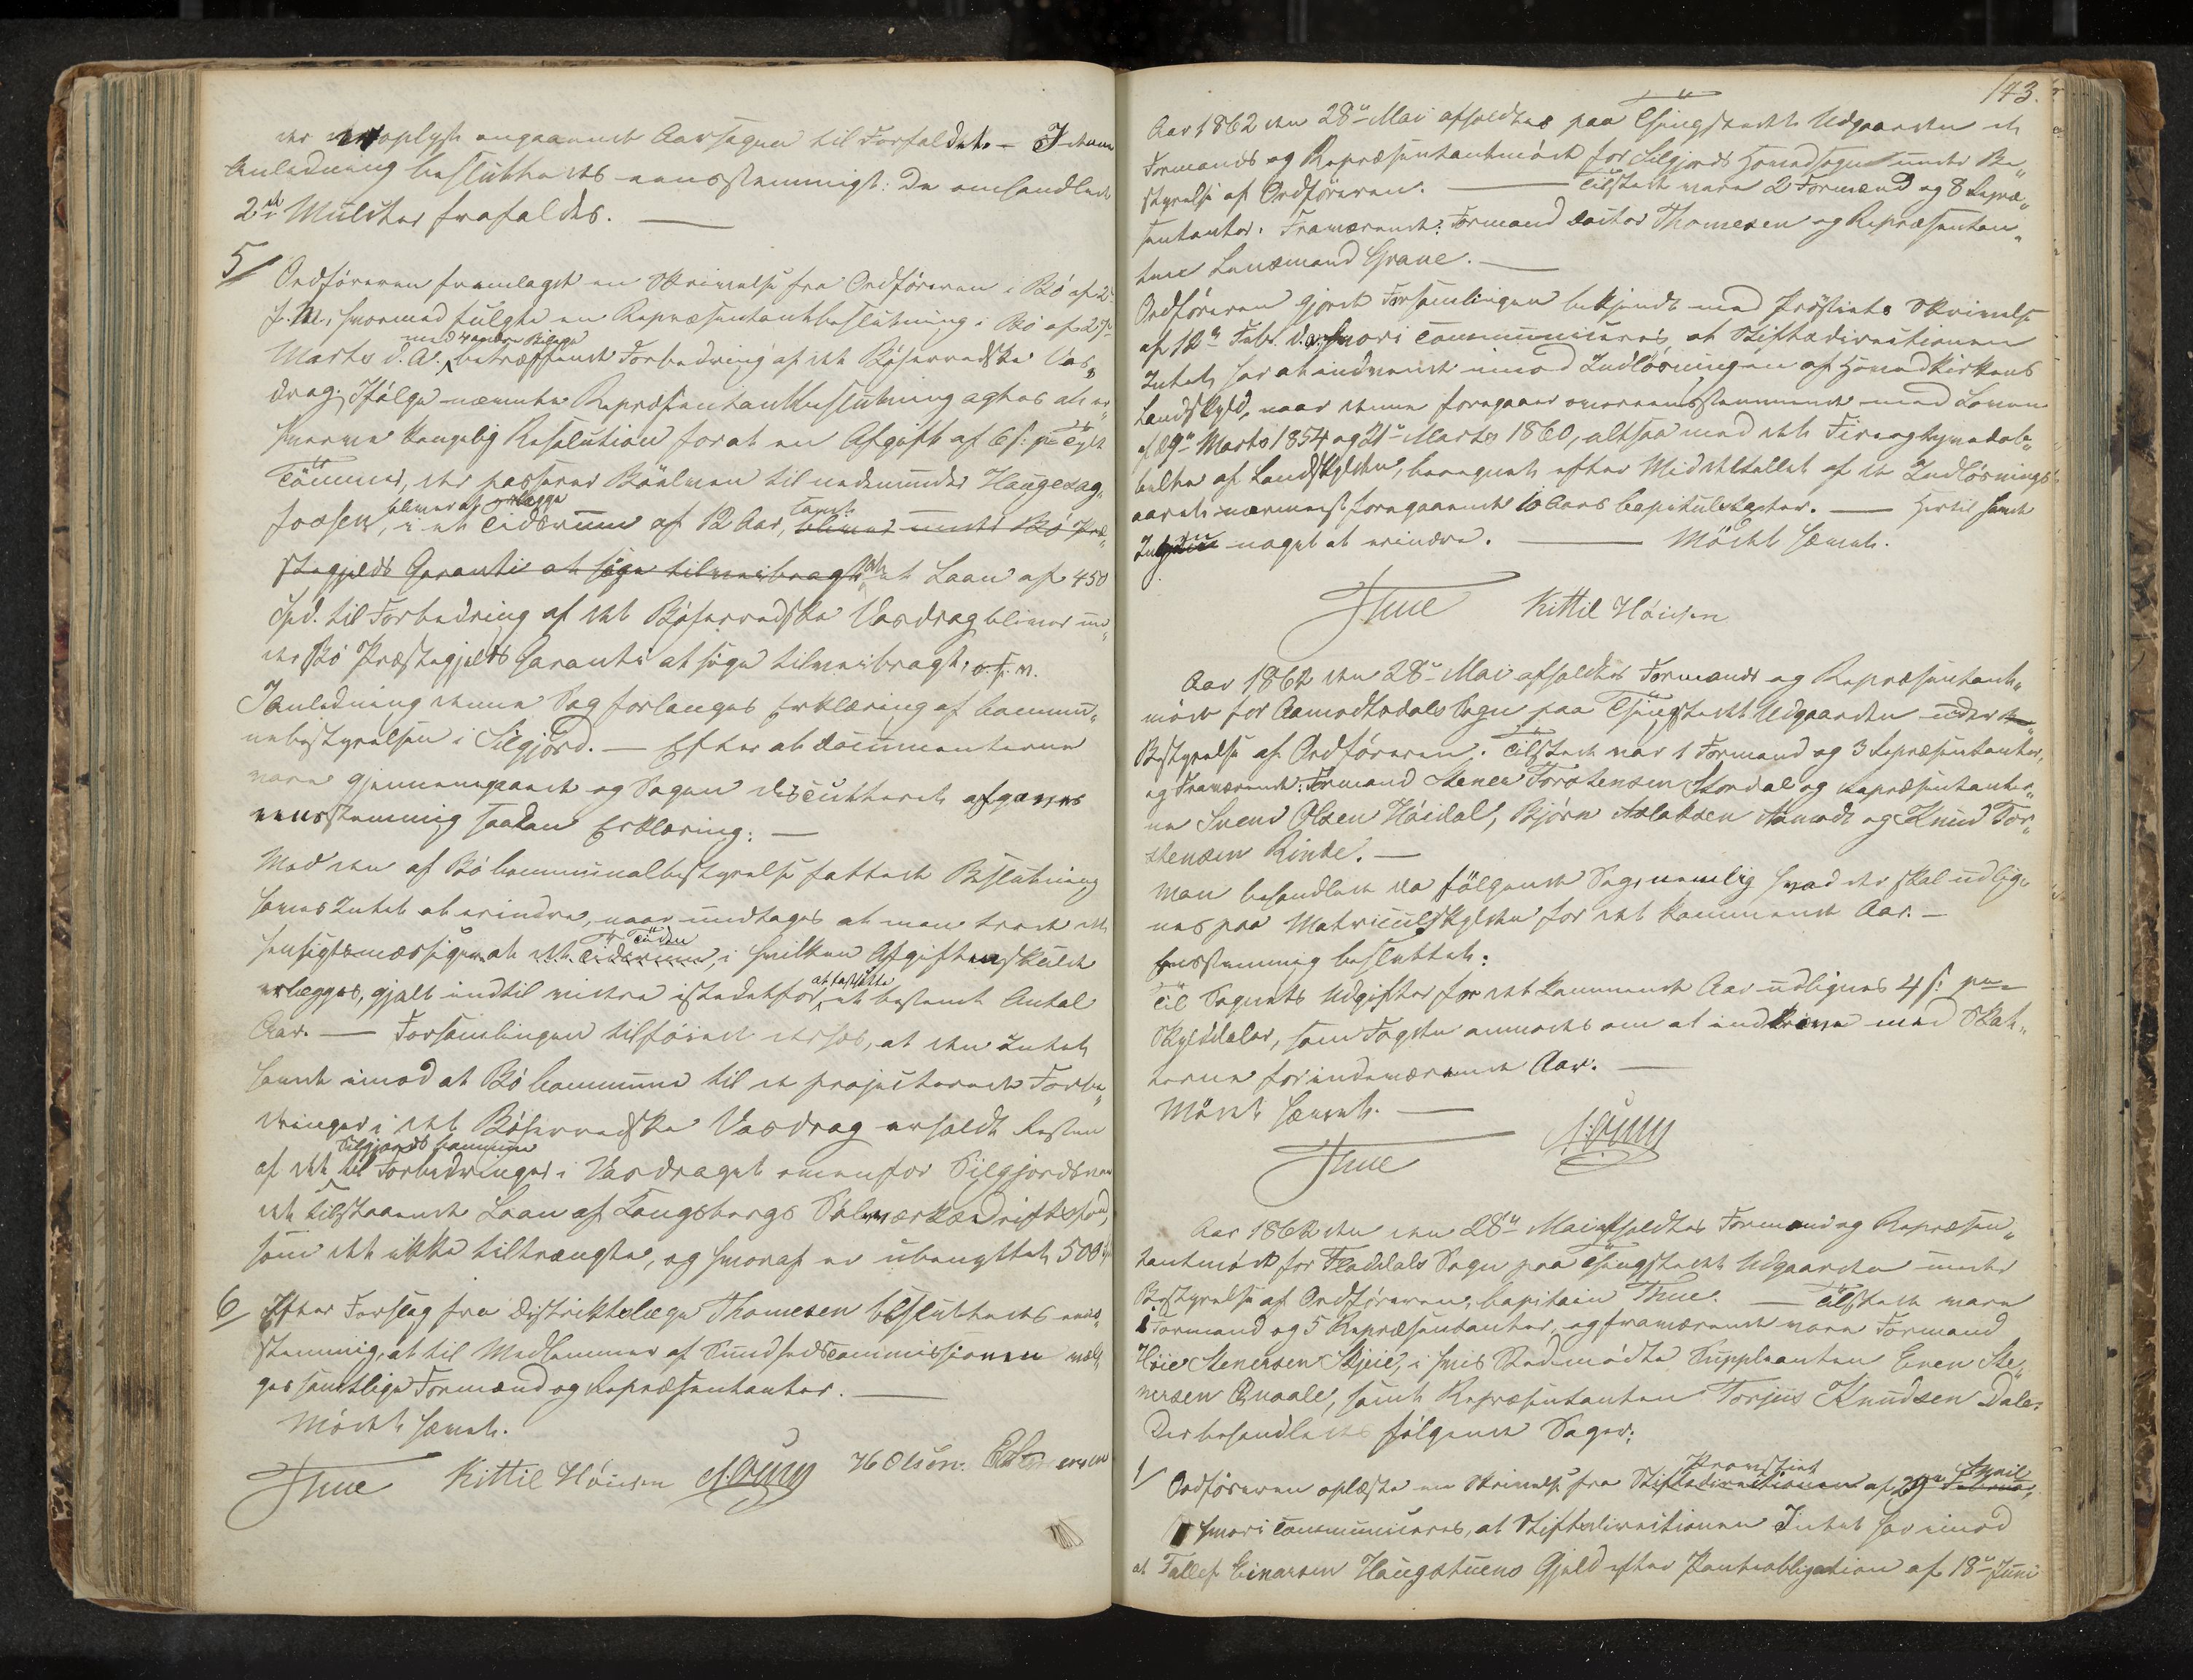 der oplyst angaaende Aarsagen til Forfaldet. – I denne
Anledning besluttedes eensstemmigt: De omhandlede
2de Mulcter frafaldes. —
5/ Ordföreren fremlagde en Skrivelse fra Ordföreren i Bö af 2
f. M., hvormed fulgte en Repræsentantbeslutning i Bö af 27
med andre Bilage
Marts d. A., betræffende Forbedring af det Böherredske Vas„
drag. Ifölge nævnte Repræsentantbeslutning agtes at er„
hverve kongelig Resolution for at en Afgift af 6 s: pr Tylt
Tömmer, der passerer Böelven til nedenunder Haugesag„
bliver at erlægge samt
fossen, i et Tidsrum af 12 Aar, bliver under Bö Præ„
stegjelds Garanti at söge tilveiebragt at et Laan af 450
Spd. til Forbedring af det Böherredske Vasdrag bliver un„
der Bö Præstegjelds Garanti at söge tilveiebragt, o. s. v.
I Anledning denne Sag forlanges Erklæring af Commu„
nebestyrelsen i Silgjord. — Efter at Documenterne
vare gjennemgaaede og Sagen discutteret afgaves
eensstemmig saadan Erklæring: —
Mod den af Bö Communalbestyrelse fattede Beslutning
haves Intet at erindre, naar undtages at man troede det
Tiden
hensigtsmæssigere at det Tidsrum, i hvilken Afgiften skulde
at fastsætte
erlægges, gjaldt indtil videre istedetfor et bestemt Antal
Aar. — Forsamlingen tilföiede derhos, at den Intet
havde imod at Bö Commune til de projecterede Forbe„
dringer i det Böherredske Vasdrag erholdt Resten
Silgjords Commune
af det til Forbedringer i Vasdraget ovenfor Silgjordsvan
det tilstaaede Laan af Kongsbergs Sölvværksdriftsfond,
som det ikke tiltrængte, og hvoraf er ubenyttet 500
6/ Efter Forslag fra Distriktslæge Thomesen besluttedes eens„
stemmig, at til Medlemmer af Sundhedscommissionen væl„
ges samtlige Formænd og Repræsentanter. —
Mödet hævet.
Thue Kittil Höisen H Olsen.
143.
Aar 1862 den 28de Mai afholdtes paa Thingstedet Udgaarden et
Formands og Repræsentantmöde for Silgjords Hovedsogn under Be„
styrelse af Ordföreren. — Tilstede vare 2 Formænd og 8 Repræ„
sentanter. Fraværende: Formand Doctor Thomesen og Repræsentan„
ten Lensmand Grave. —
Ordföreren gjorde Forsamlingen bekjendt med Provstiets Skrivelse
af 12te Febr. d. A., hvori communiceres, at Stiftsdirectionen
Intet har at indvende imod Indlösningen af Hovedkirkens
Landskyld, naar denne foregaaer overeensstemmende med Loven
af 29de Marts 1854 og 21de Marts 1860, altsaa med det Fireogtyvedob„
belte af Landskylden, beregnet efter Middeltallet af de Indlösnings„
aaret nærmest foregaaende 10 Aars Capitelstaxter. — Hertil havde
Ingen noget at erindre. — Mödet hævet.
Thue Kittil Höisen
Aar 1862 den 28de Mai afholdtes Formands og Repræsentant„
möde for Aamodtsdals Sogn paa Thingstedet Udgaarden under
Bestyrelse af Ordföreren. Tilstede var 1 Formand og 3 Repræsentanter,
og Fraværende: Formand Stener Torstensen Stordal og Repræsentanter„
ne Svend Olsen Höidal, Björn Aslaksen Aamodt og Knud Tor„
stensen Rinde. —
Man behandlede da fölgende Sag, nemlig hvad der skal udlig„
nes paa Matriculskylden for det kommende Aar. —
Eensstemmig besluttet:
Til Sognets Udgifter for det kommende Aar udlignes 4 s: pr
Skylddaler, som Fogden anmodes om at indkræve med Skat„
terne for indeværende Aar. —
Mödet hævet. —
Thue
Aar 1862 den den 28de Mai afholdtes Formands og Repræsen„
tantmöde for Fladdals Sogn paa Thingstedet Udgaarden under
Bestyrelse af Ordföreren, Capitain Thue. — Tilstede vare
1 Formand og 5 Repræsentanter, og fraværende vare Formand
Höie Stenersen Skjeie, i hvis Sted mödte Suppleanten Even Ste„
nersen Qvaale, samt Repræsentanten Torjus Knudsen Dale.
Der behandledes fölgende Sager:
Provstiet April
1/ Ordföreren oplæste en Skrivelse fra Stiftsdirectionen af 29de Februar,
hvori communiceres, at Stiftsdirectionen Intet har imod
at Tallef Einarsen Haugstuens Gjeld efter Panteobligation af 18de Juni